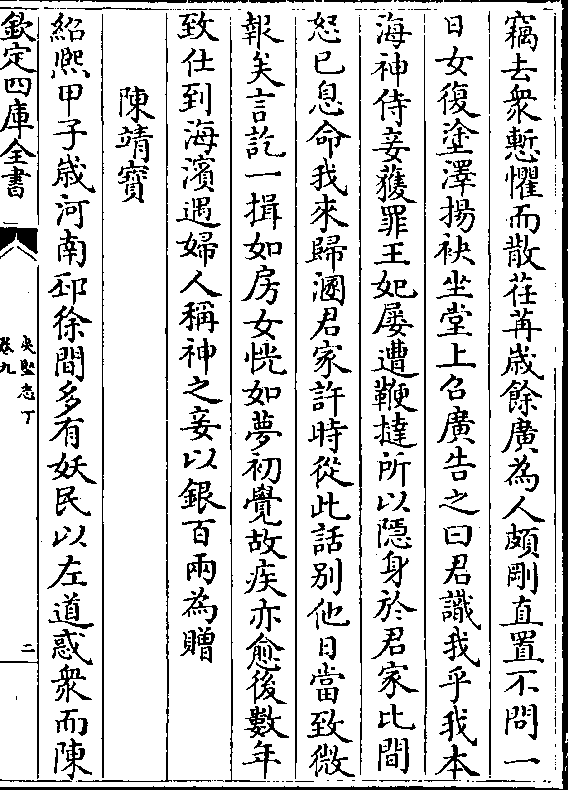 竊去衆慙懼而散荏苒歲餘廣為人頗剛直置不問一
日女復塗澤揚袂坐堂上召廣告之曰君識我乎我本
海神侍妾獲罪王妃屢遭鞭撻所以隱身於君家比間
怒已息命我來歸溷君家許時從此話別他日當致微
報矣言訖一揖如房女恍如夢初覺故疾亦愈後數年
致仕到海濱遇婦人稱神之妾以銀百兩為贈
陳靖寶
紹熙甲子歲河南邳徐間多有妖民以左道惑衆而陳
欽定四庫全書
夷堅志丁
卷九
二